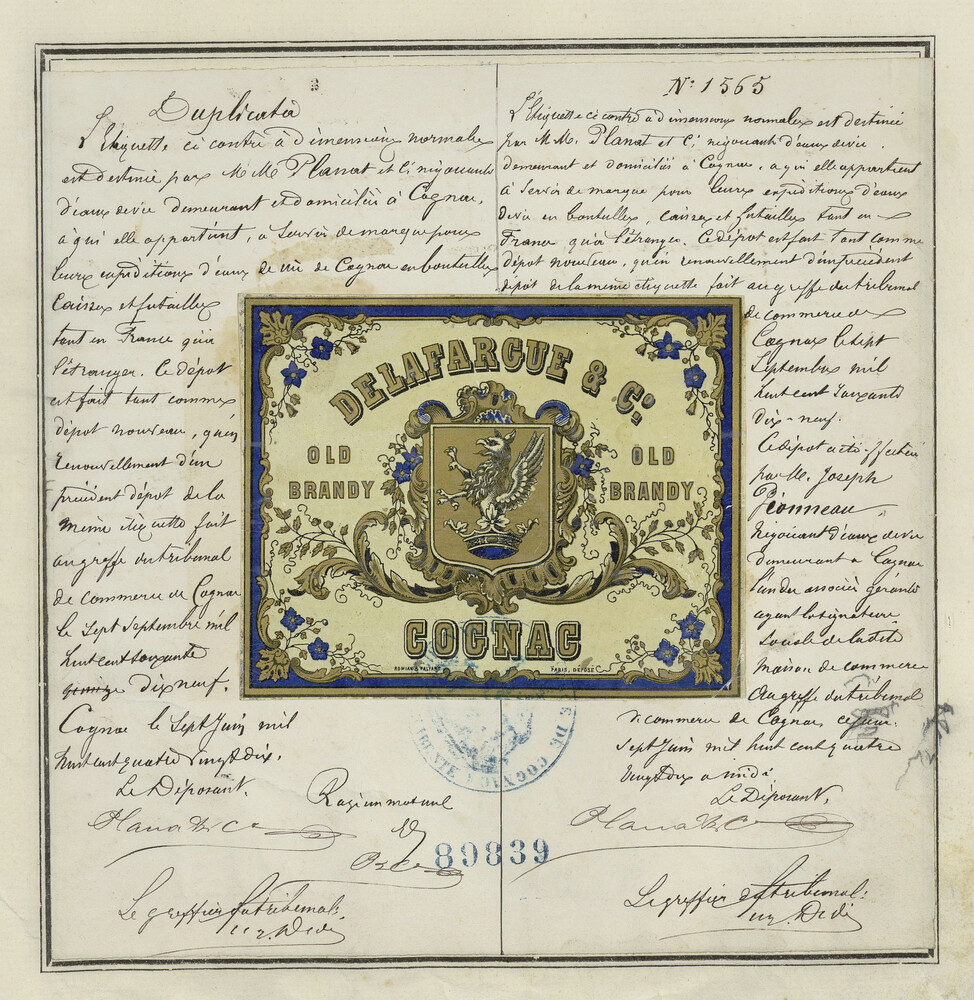 Duplicata
L'étiquette ci contre à dimensions normales
est destinée par M M Planat et Cie négociants
d'eaux de vie demeurant et domiciliés à Cognac,
à qui elle appartient, à servir de marque pour
leurs expéditions d'eaux de vie de Cognac en bouteilles
caisses et futailles
tant en France qu'à
l'étranger. Ce dépôt
est fait tant comme
dépôt nouveau, qu'en
renouvellement d'un
précédent dépôt de la
même étiquette fait
au greffe du tribunal
de commerce de Cognac
le sept septembre mil
huit cent soixante
dix neuf.
Cognac le sept Juin mil
huit cent quatre vingt dix.
Le Déposant.
Planat & Co
Rayé un mot nul
Le greffier du tribunal.
N° 1565
L'étiquette ci contre à dimensions normales est destinée
par M M. Planat et Cie négociants d'eaux de vie
demeurant et domiciliés à Cognac, à qui elle appartient
à servir de marque pour leurs expéditions d'eaux
de vie en bouteilles, caisses et futailles tant en
France qu'à l'étranger. Ce dépôt est fait tant comme
dépôt nouveau, qu'en renouvellement d'un précédent
dépôt de la même étiquette fait au greffe du tribunal
de commerce de
Cognac le sept
Septembre mil
huit cent soixante
dix-neuf.
Ce dépôt a été effectué
par M. Joseph
négociant d'eaux de vie
demeurant à Cognac
l'un des associés gérants
ayant la signature
sociale de la dite
maison de commerce
au greffe du tribunal
de commerce de Cognac ce jour
sept Juin mil huit cent quatre
vingt dix à midi
Le Déposant,
Planat & Co
Le greffier du tribunal.
DELAFARGUE & Co
OLD BRANDY
OLD BRANDY
COGNAC
ROMAIN & PALYART
PARIS, DÉPOSÉ
89839